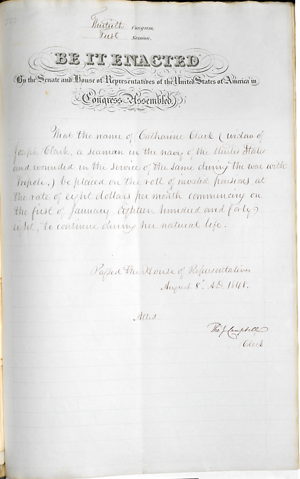 Thirtieth Congress
First Session
BE IT ENACTED
By the Senate and House of Representatives of the United States of America in
Congress Assembled
That the name of Catharine Clark (widow of
Joseph Clark, a seaman in the navy of the United States
and wounded in the service of the same during the war with
Tripoli,) be placed on the roll of invalid pensions at
the rate of eight dollars per month commencing on
the first of January eighteen hundred and forty
eight, to continue during her natural life.
Passed the House of Representatives
August 8, AD 1848.
Attest
Tho J Campbell
Clerk